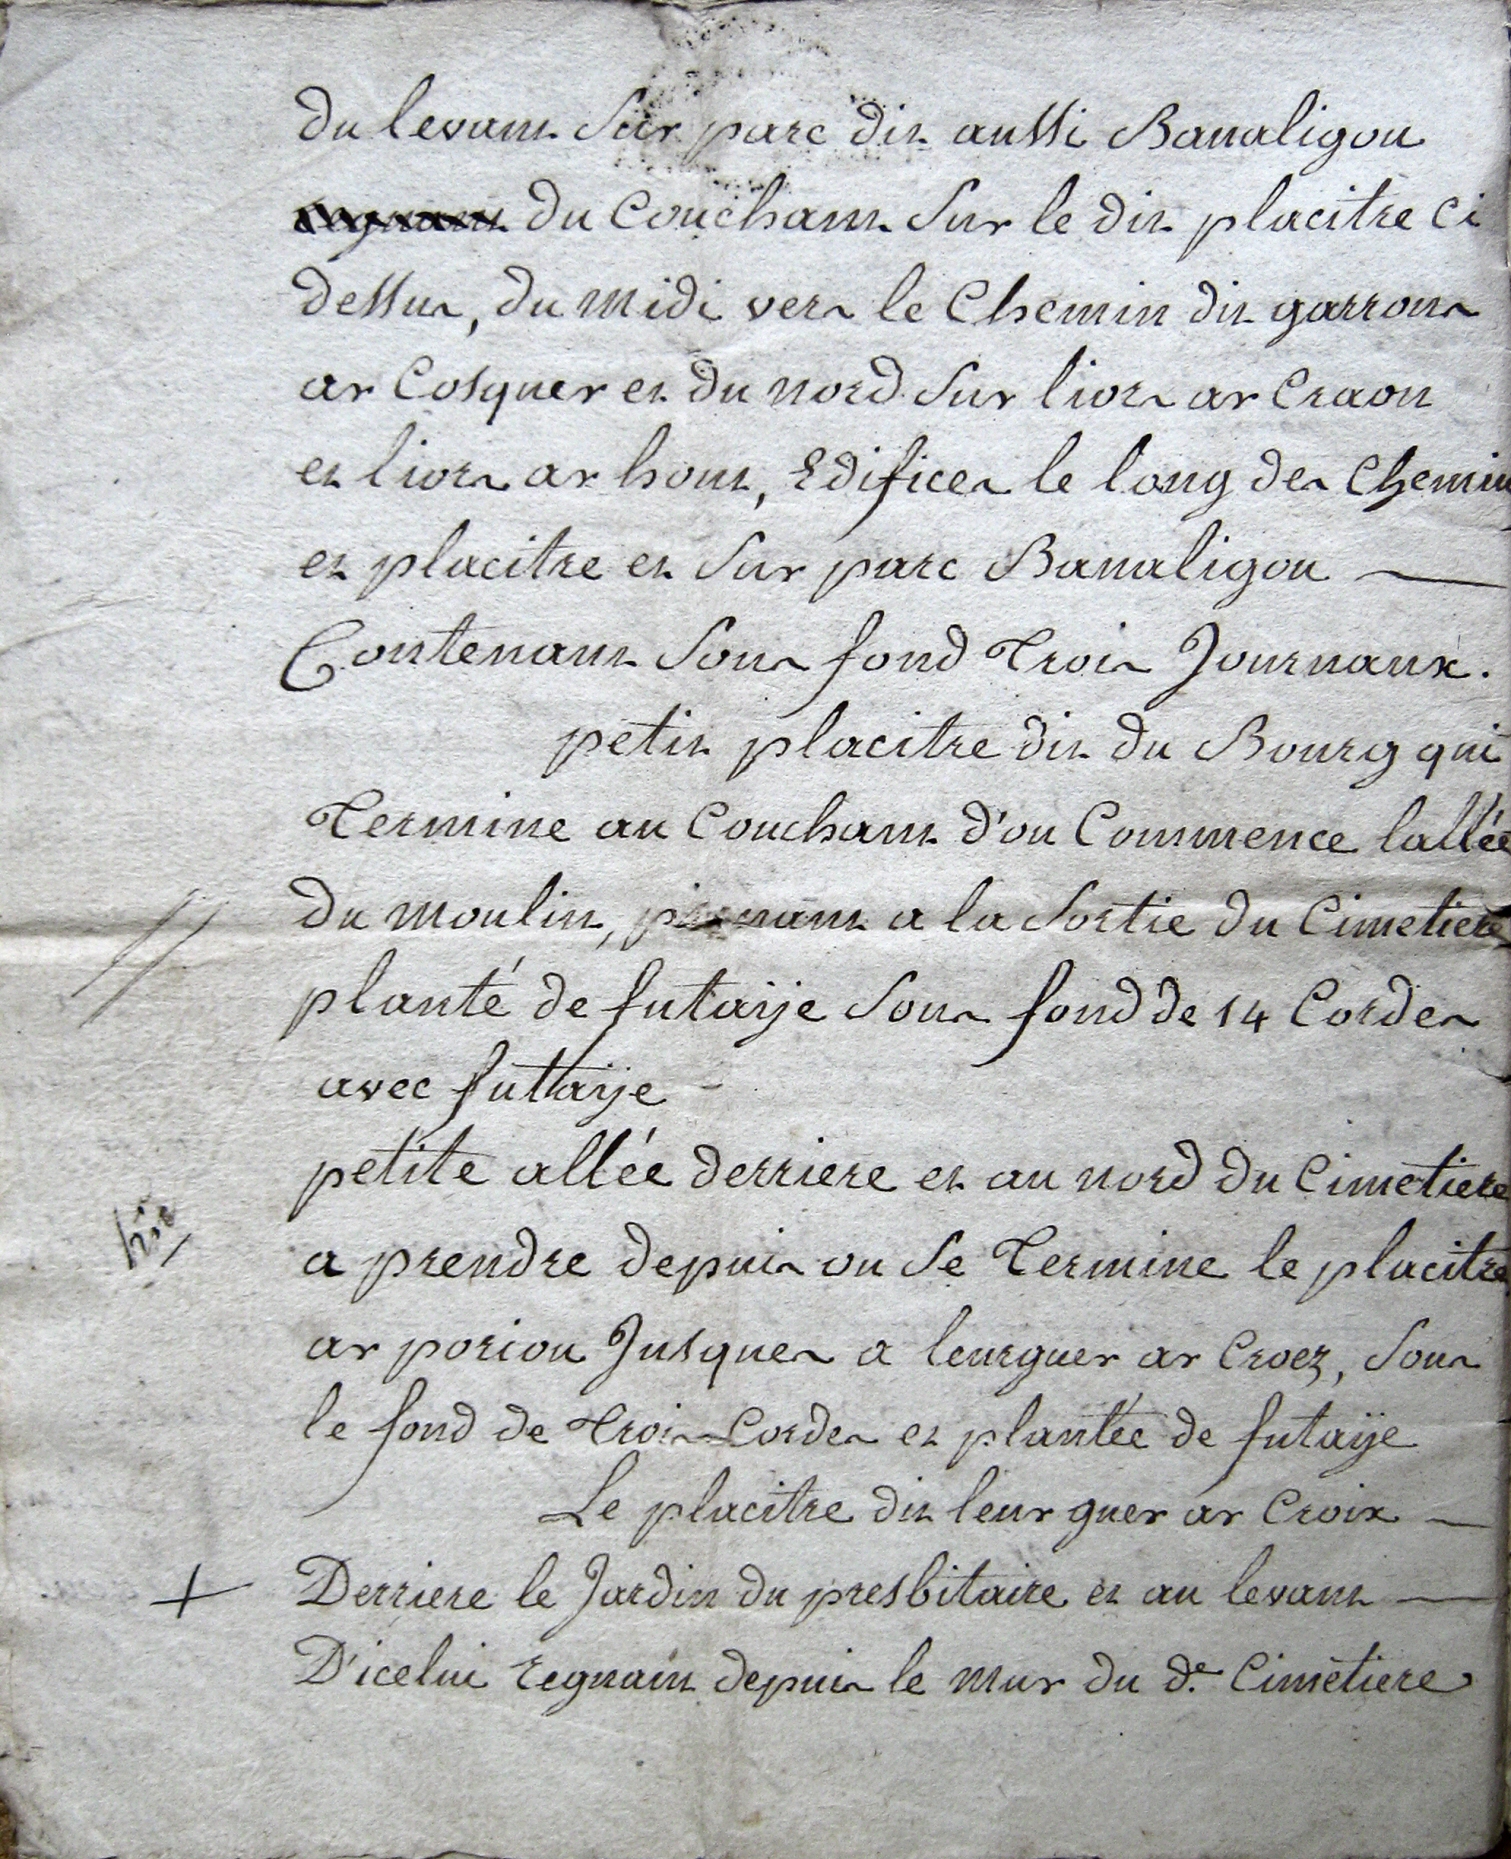 du levant Sur parc dit aussi Banaligou
du Couchant Sur le dit placitre Ci
dessus, du midi vers le Chemin dit garront
ar Cosquer et du nord Sur liors ar Craon
et liors ar hont, Edifices le long des Chemin
et placitre et Sur parc Banaligou —
Contenant Sous fond Trois Journaux.
petit placitre dit du Bourg qui
Termine au Couchant d'ou Commence lallée
du moulin, a la Sortie du Cimetiere
planté de futaije Sous fond de 14 Cordes
avec futtaije
petite allée derriere et au nord du Cimetiere
a prendre depuis ou Se Termine le placitre
ar porziou Jusques a leurguer ar Croez, Sous
le fond de Trois Cordes et plantée de futaije
Le placitre dit leur guer ar Croix —
+ Derriere le Jardin du presbitaire et au levant —
D'icelui regnant depuis le mur du d.t Cimetiere